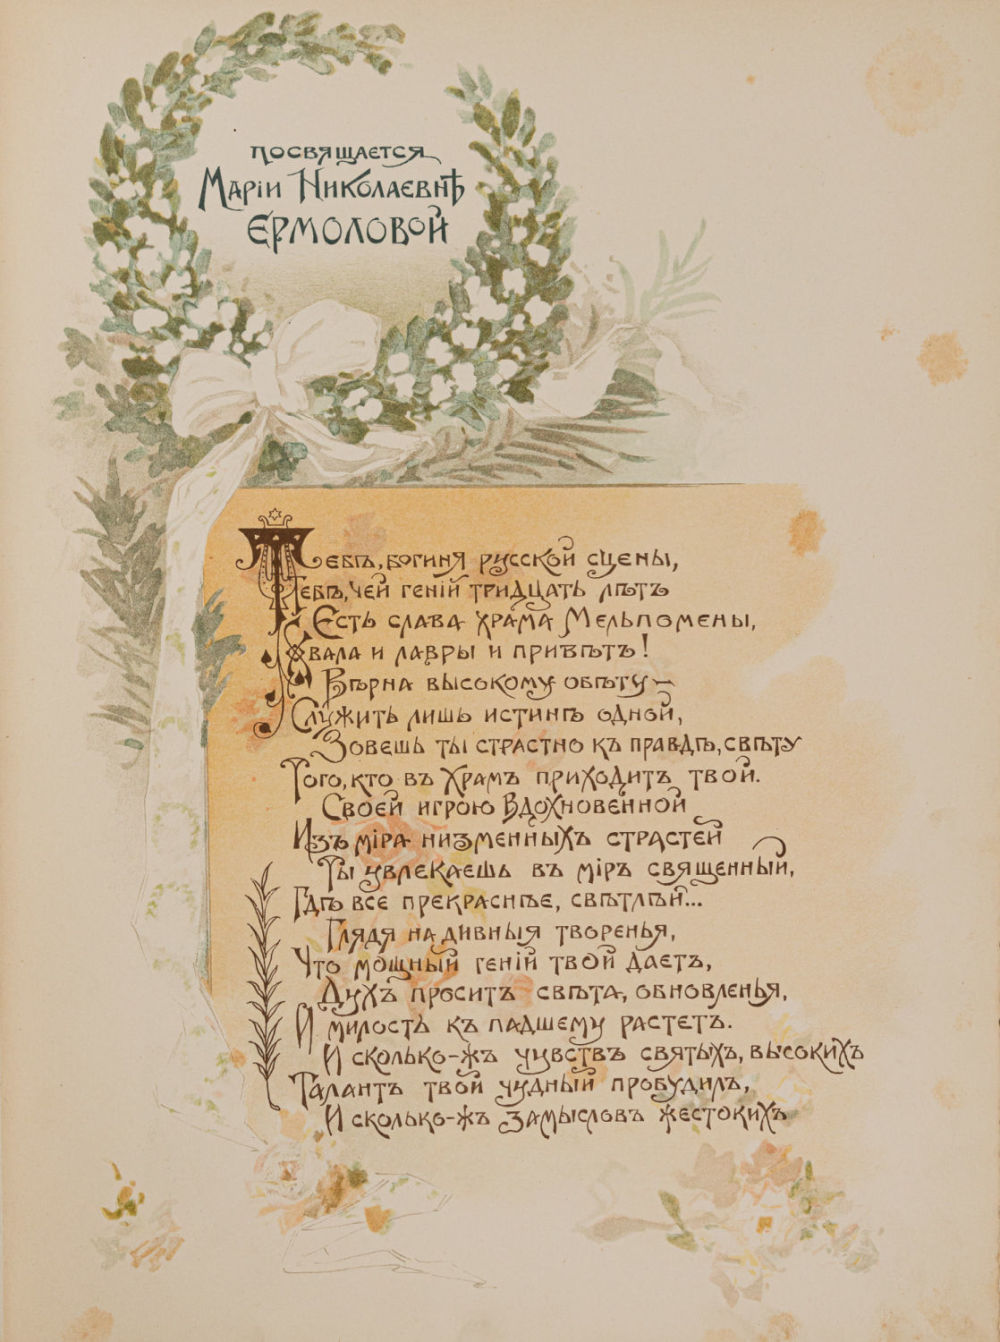 Посвящается
Маріи Николаевнѣ
Ермоловой
Тебѣ, богиня русской сцены,
Тебѣ, чей геній тридцать лѣтъ
Есть слава храма Мельпомены,
Хвала и лавры и привѣтъ!
Вѣрна высокому обѣту—
Служить лишь истинѣ одной,
Зовешь ты страстно къ правдѣ, свѣту
Того, кто въ храмъ приходитъ твой.
Своей игрою вдохновенной
Изъ міра низменныхъ страстей
Ты увлекаешь въ міръ священный,
Гдѣ все прекраснѣе, свѣтлѣй...
Глядя на дивныя творенья,
Что мощный геній твой даетъ,
Духъ проситъ свѣта, обновленья,
И милость къ падшему растетъ.
И сколько-жъ чувствъ святыхъ, высокихъ
Талантъ твой чудный пробудилъ,
И сколько-жъ замысловъ жестокихъ